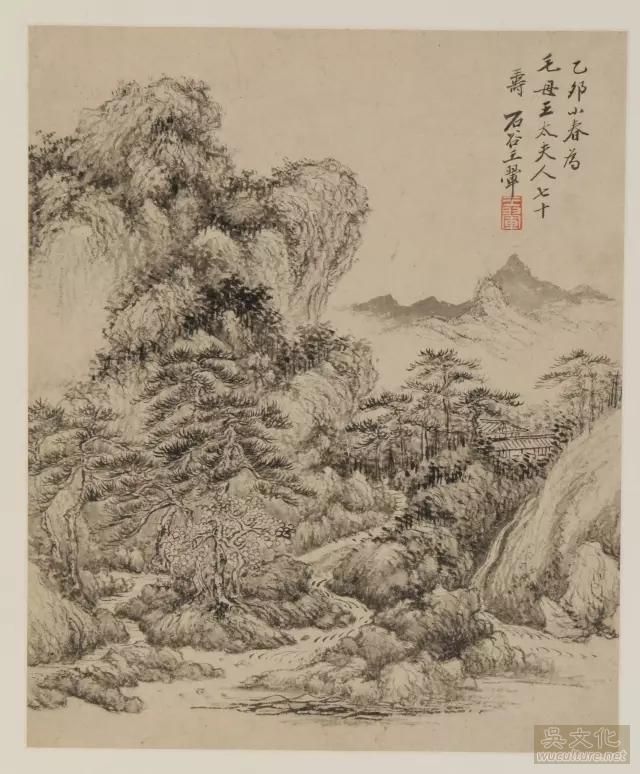 乙卯小春为
毛母王太夫人七十
寿 石谷王翚
吳文化
wuculture.net